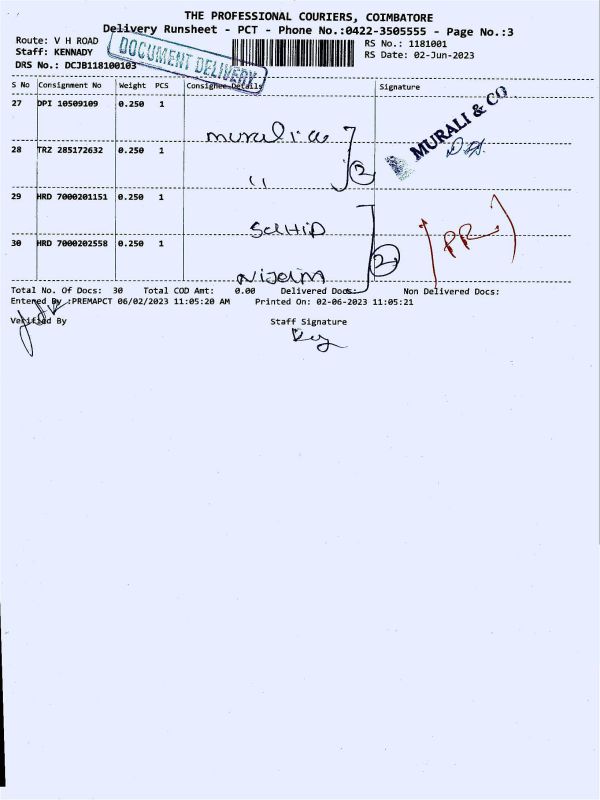 THE PROFESSIONAL COURIERS, COIMBATORE
Delivery Runsheet - PCT - Phone No.:0422-3505555 - Page No.:3
Route: V H ROAD
Staff: KENNADY
DRS No.: DCJB118100103
DOCUMENT DELIVERY
RS No.: 1181001
RS Date: 02-Jun-2023
S No Consignment No Weight PCS Consignee Details Signature
27 DPI 10509109 0.250 1
murali &co
MURALI & CO
28 TRZ 285172632 0.250 1
" 2
29 HRD 7000201151 0.250 1
SaHiD
30 HRD 7000202558 0.250 1
Nijam 2
PR
Total No. Of Docs: 30 Total COD Amt: 0.00 Delivered Docs: Non Delivered Docs:
Entered By :PREMAPCT 06/02/2023 11:05:20 AM Printed On: 02-06-2023 11:05:21
Verified By Staff Signature